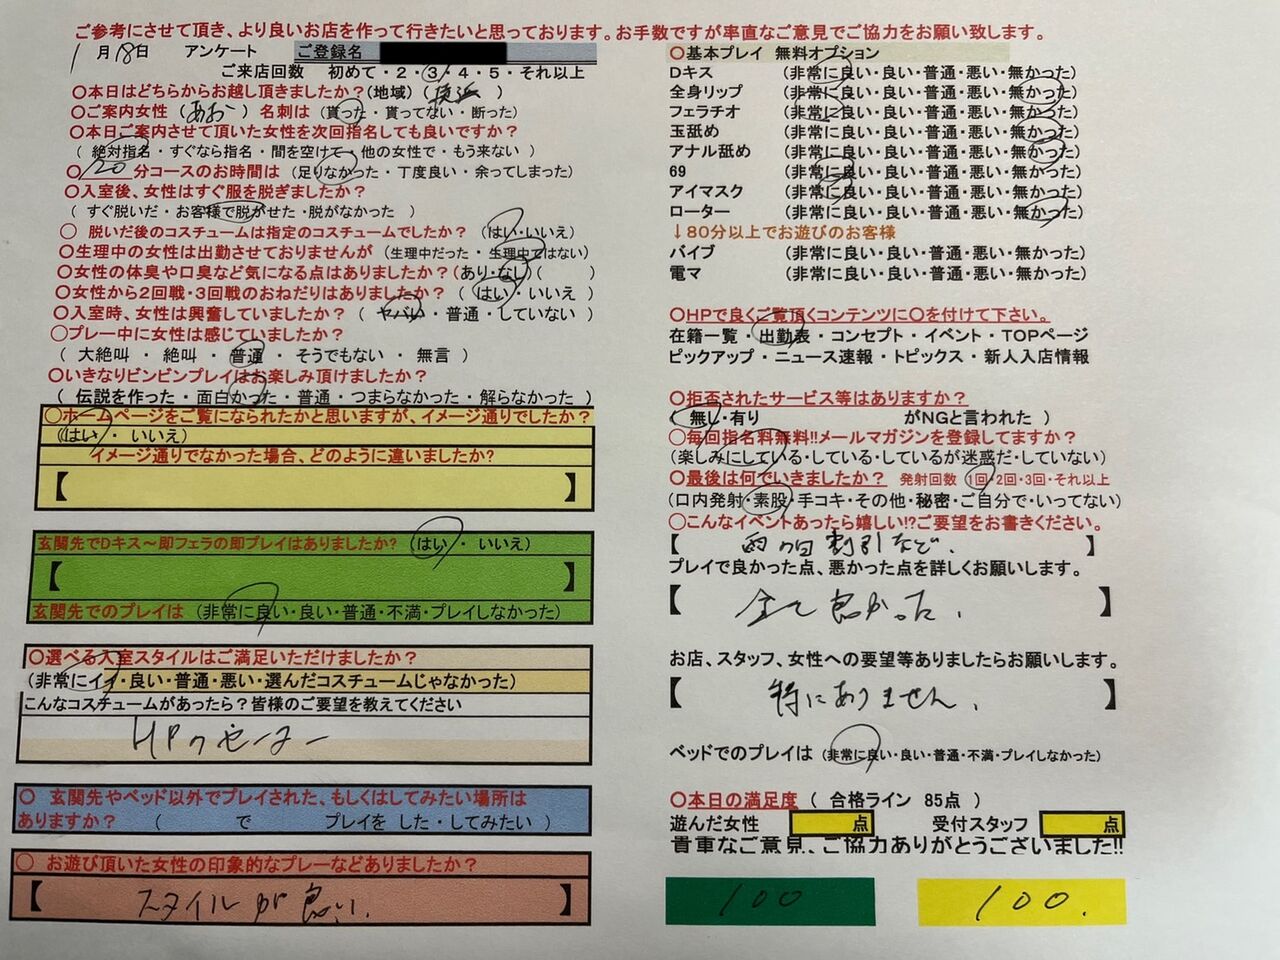 ご参考にさせて頂き、より良いお店を作って行きたいと思っております。お手数ですが率直なご意見でご協力をお願い致します。
1月18日 アンケート ご登録名
ご来店回数 初めて・2・3・4・5・それ以上
〇本日はどちらからお越し頂きましたか?(地域)(横浜)
〇ご案内女性 (あお) 名刺は (貰った・貰ってない・断った)
〇本日ご案内させて頂いた女性を次回指名しても良いですか?
(絶対指名・すぐなら指名・間を空けて・他の女性で・もう来ない)
〇120分コースのお時間は (足りなかった・丁度良い・余ってしまった)
〇入室後、女性はすぐ服を脱ぎましたか?
(すぐ脱いだ・お客様で脱がせた・脱がなかった )
〇 脱いだ後のコスチュームは指定のコスチュームでしたか? (はい・いいえ)
〇生理中の女性は出勤させておりませんが (生理中だった・生理中ではない)
〇女性の体臭や口臭など気になる点はありましたか?(あり・なし)( )
〇女性から2回戦・3回戦のおねだりはありましたか? (はい・いいえ )
〇入室時、女性は興奮していましたか? ( ヤバい・普通・していない )
〇プレー中に女性は感じていましたか?
( 大絶叫 ・ 絶叫 ・ 普通 ・ そうでもない ・ 無言 )
〇いきなりビンビンプレイはお楽しみ頂けましたか?
( 伝説を作った・面白かった・普通・つまらなかった・解らなかった)
〇ホームページをご覧になられたかと思いますが、イメージ通りでしたか?
(はい・ いいえ)
イメージ通りでなかった場合、どのように違いましたか?
【 】
玄関先でDキス～即フェラの即プレイはありましたか? (はい ・ いいえ)
【 】
玄関先でのプレイは (非常に良い・良い・普通・不満・プレイしなかった)
〇選べる入室スタイルはご満足いただけましたか?
(非常にイイ・良い・普通・悪い・選んだコスチュームじゃなかった)
こんなコスチュームがあったら?皆様のご要望を教えてください
HPのセーラー
〇 玄関先やベッド以外でプレイされた、もしくはしてみたい場所は
ありますか? ( で プレイを した・してみたい )
〇 お遊び頂いた女性の印象的なプレーなどありましたか?
【 スタイルが良い. 】
〇基本プレイ 無料オプション
Dキス (非常に良い・良い・普通・悪い・無かった)
全身リップ (非常に良い・良い・普通・悪い・無かった)
フェラチオ (非常に良い・良い・普通・悪い・無かった)
玉舐め (非常に良い・良い・普通・悪い・無かった)
アナル舐め (非常に良い・良い・普通・悪い・無かった)
69 (非常に良い・良い・普通・悪い・無かった)
アイマスク (非常に良い・良い・普通・悪い・無かった)
ローター (非常に良い・良い・普通・悪い・無かった)
↓80分以上でお遊びのお客様
バイブ (非常に良い・良い・普通・悪い・無かった)
電マ (非常に良い・良い・普通・悪い・無かった)
〇HPで良くご覧頂くコンテンツに〇を付けて下さい。
在籍一覧・出勤表・コンセプト・イベント・TOPページ
ピックアップ・ニュース速報・トピックス・新人入店情報
〇拒否されたサービス等はありますか?
( 無し・有り がNGと言われた )
〇毎回指名料無料!!メールマガジンを登録してますか?
(楽しみにしている・している・しているが迷惑だ・していない)
〇最後は何でいきましたか? 発射回数 1回・2回・3回・それ以上
(口内発射・素股・手コキ・その他・秘密・ご自分で・いってない)
〇こんなイベントあったら嬉しい!?ご要望をお書きください。
【 雨の日割引など. 】
プレイで良かった点、悪かった点を詳しくお願いします。
【 全て良かった. 】
お店、スタッフ、女性への要望等ありましたらお願いします。
【 特にありません. 】
ベッドでのプレイは (非常に良い・良い・普通・不満・プレイしなかった)
〇本日の満足度 ( 合格ライン 85点 )
遊んだ女性 点 受付スタッフ 点
貴重なご意見、ご協力ありがとうございました!!
100 100.